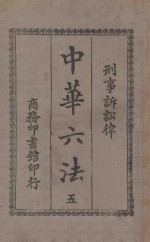 刑事訴訟律
中華六法
五
商務印書館印行